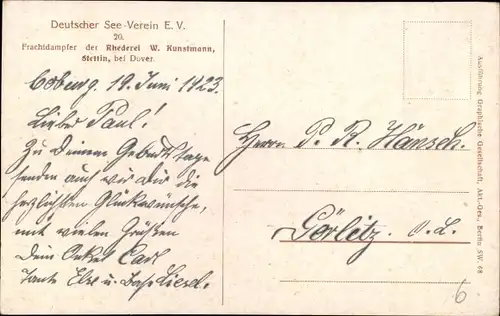 Deutscher See-Verein E. V.
20.
Frachtdampfer der Rhederei W. Kunstmann,
Stettin, bei Dover.
Coburg, 19. Juni 1923.
Lieber Paul!
Zu Deinem Geburtstage
senden auch wir Dir die
herzlichsten Glückwünsche,
mit vielen Grüßen
Dein Onkel Carl
Tante Else u. Base Liesel.
Herrn P. R. Hänsch.
Görlitz. O. L.
Ausführung Graphische Gesellschaft, Akt.-Ges., Berlin SW. 68
6